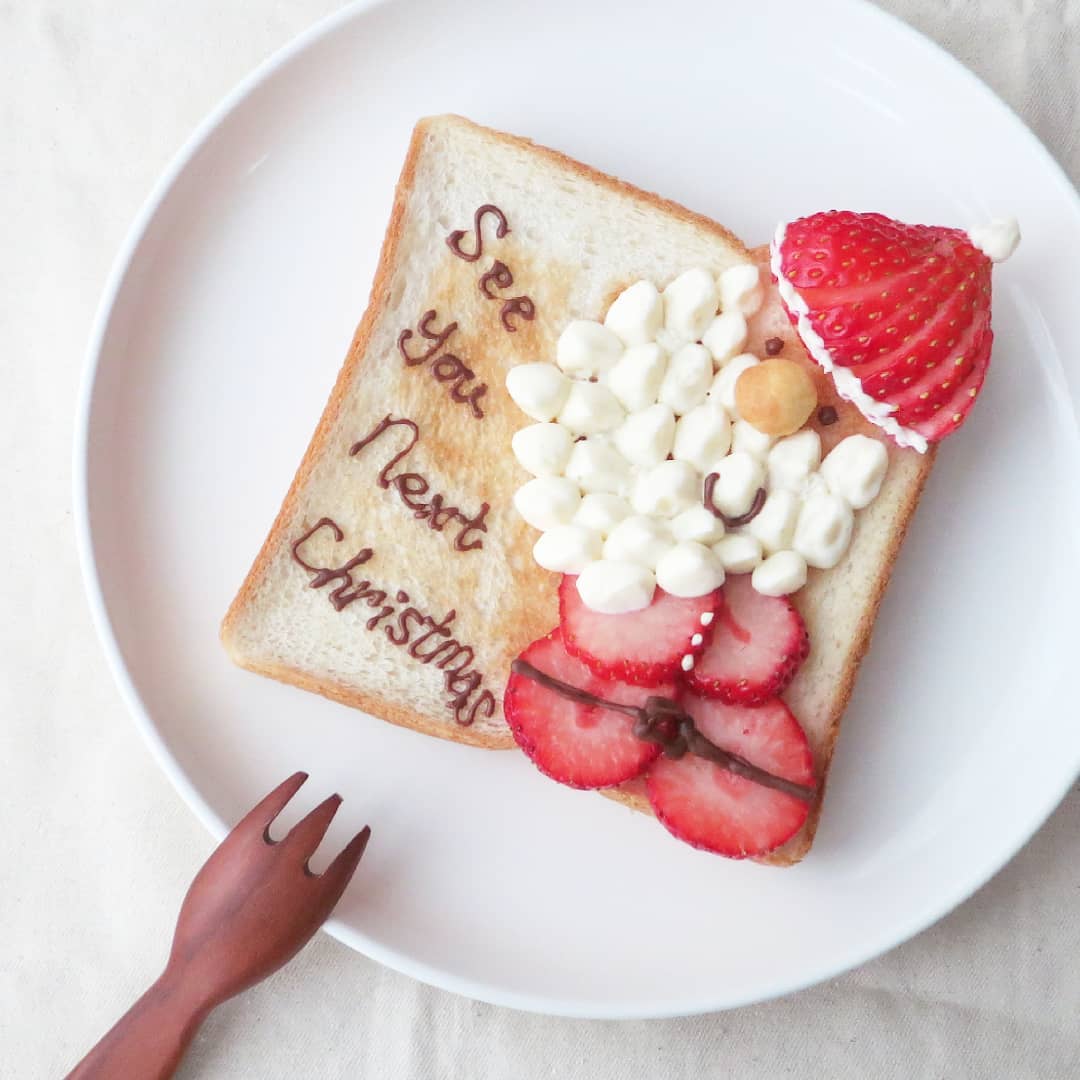 See
you
Next
Christmas